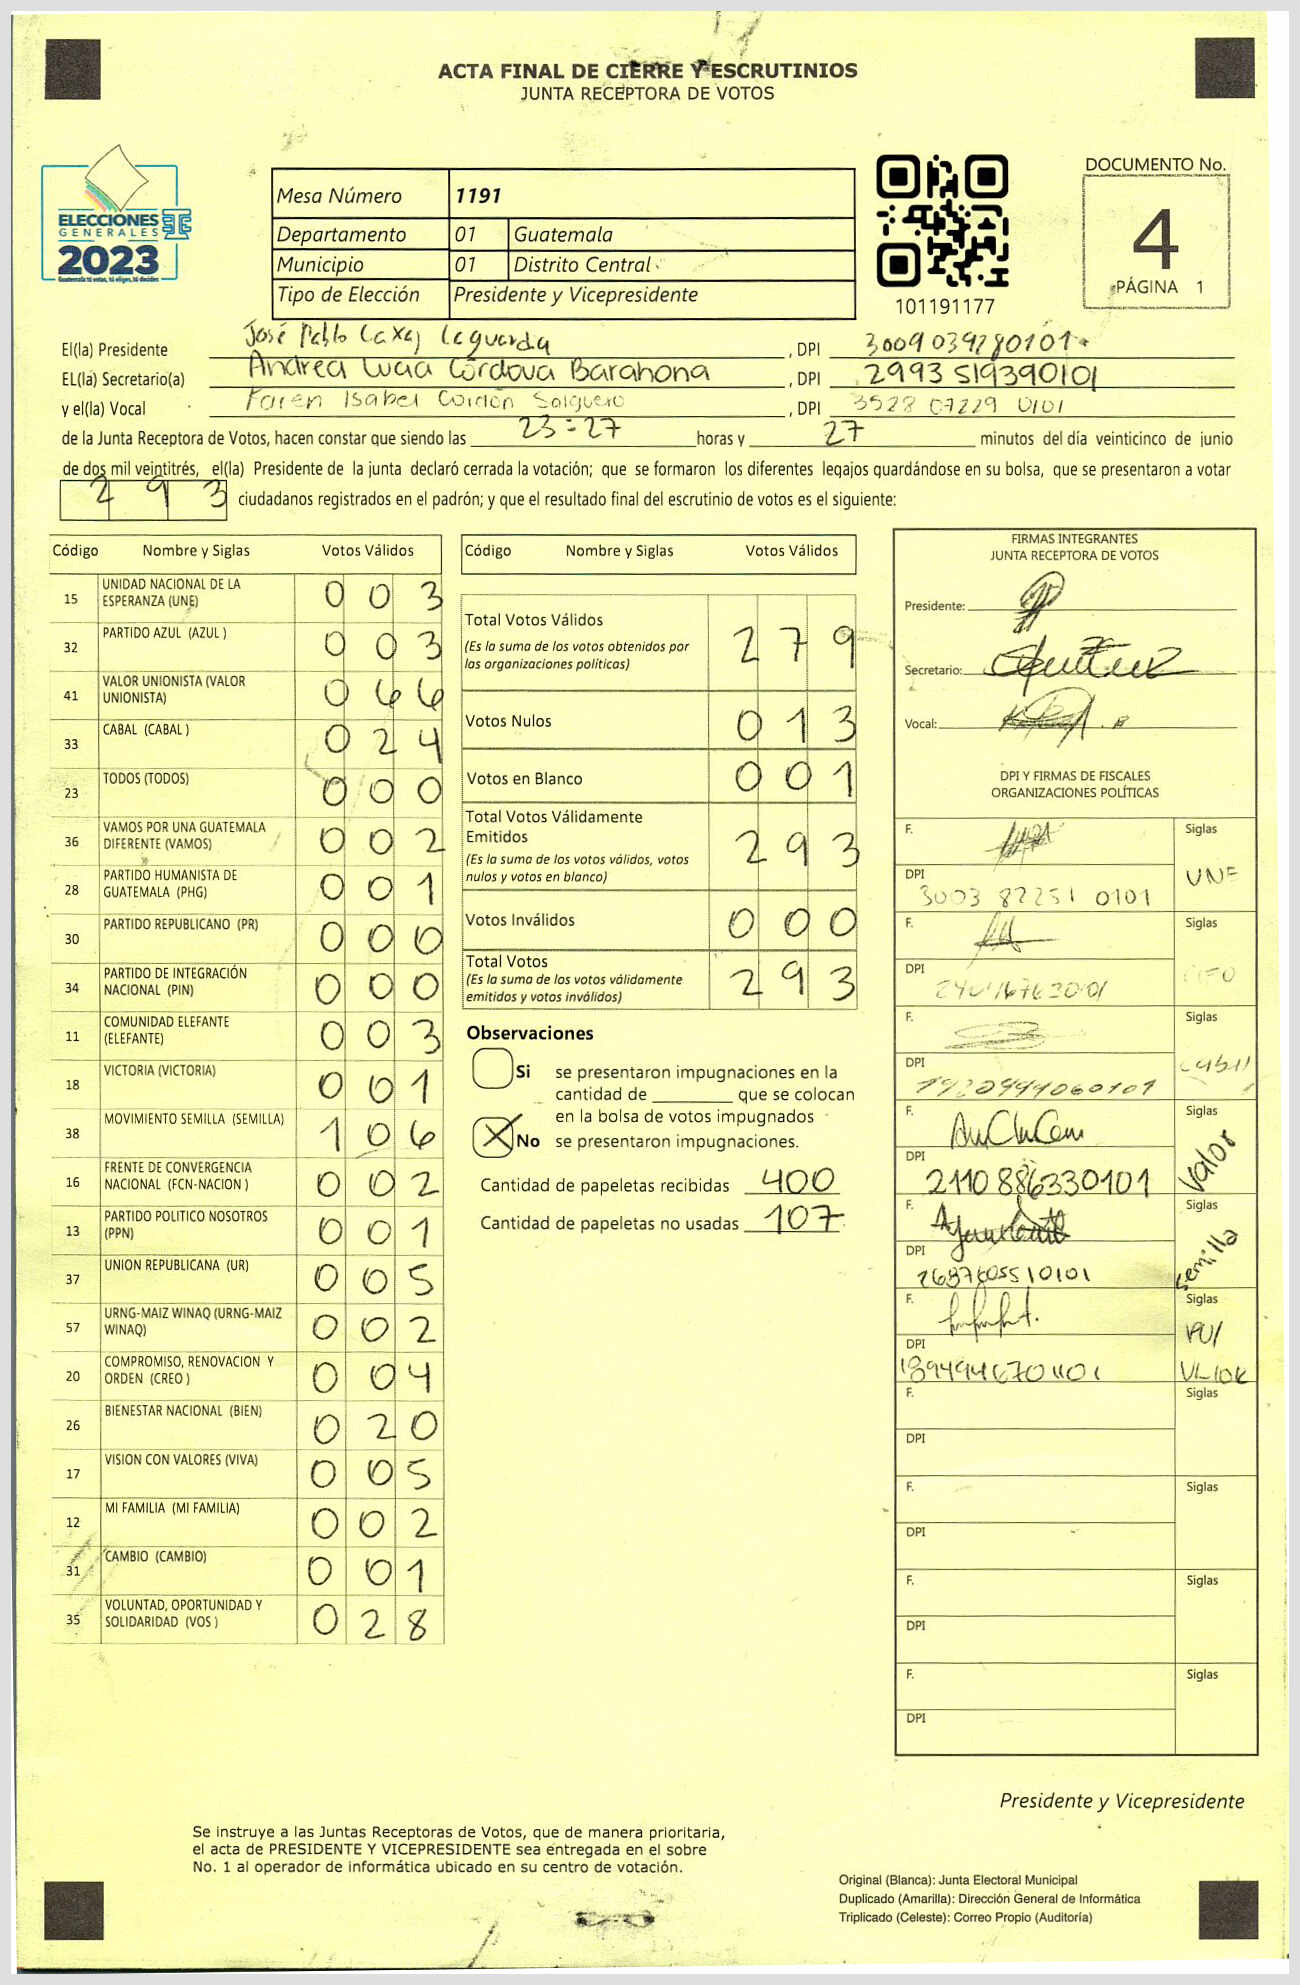 ACTA FINAL DE CIERRE Y ESCRUTINIOS
JUNTA RECEPTORA DE VOTOS
ELECCIONES
GENERALES
2023
Guatemala tú votas, tú eliges, tú decides
Mesa Número 1191
Departamento 01 Guatemala
Municipio 01 Distrito Central
Tipo de Elección Presidente y Vicepresidente
101191177
DOCUMENTO No.
4
PÁGINA 1
El(la) Presidente José Pablo Laguarda , DPI
EL(la) Secretario(a) Andrea Lucia Córdova Barahona , DPI 2993 519390101
y el(la) Vocal Karen Isabel Cordón Salguero , DPI 3528 07229 0101
de la Junta Receptora de Votos, hacen constar que siendo las 23:27 horas y 27 minutos del día veinticinco de junio
de dos mil veintitrés, el(la) Presidente de la junta declaró cerrada la votación; que se formaron los diferentes legajos guardándose en su bolsa, que se presentaron a votar
293 ciudadanos registrados en el padrón; y que el resultado final del escrutinio de votos es el siguiente:
Código Nombre y Siglas Votos Válidos
15 UNIDAD NACIONAL DE LA ESPERANZA (UNE) 0 0 3
32 PARTIDO AZUL (AZUL ) 0 0 3
41 VALOR UNIONISTA (VALOR UNIONISTA) 0 6 6
33 CABAL (CABAL ) 0 2 4
23 TODOS (TODOS) 0 0 0
36 VAMOS POR UNA GUATEMALA DIFERENTE (VAMOS) 0 0 2
28 PARTIDO HUMANISTA DE GUATEMALA (PHG) 0 0 1
30 PARTIDO REPUBLICANO (PR) 0 0 0
34 PARTIDO DE INTEGRACIÓN NACIONAL (PIN) 0 0 0
11 COMUNIDAD ELEFANTE (ELEFANTE) 0 0 3
18 VICTORIA (VICTORIA) 0 0 1
38 MOVIMIENTO SEMILLA (SEMILLA) 1 0 6
16 FRENTE DE CONVERGENCIA NACIONAL (FCN-NACION ) 0 0 2
13 PARTIDO POLITICO NOSOTROS (PPN) 0 0 1
37 UNION REPUBLICANA (UR) 0 0 5
57 URNG-MAIZ WINAQ (URNG-MAIZ WINAQ) 0 0 2
20 COMPROMISO, RENOVACION Y ORDEN (CREO ) 0 0 4
26 BIENESTAR NACIONAL (BIEN) 0 2 0
17 VISION CON VALORES (VIVA) 0 0 5
12 MI FAMILIA (MI FAMILIA) 0 0 2
31 CAMBIO (CAMBIO) 0 0 1
35 VOLUNTAD, OPORTUNIDAD Y SOLIDARIDAD (VOS ) 0 2 8
Código Nombre y Siglas Votos Válidos
Total Votos Válidos 2 7 9
(Es la suma de los votos obtenidos por
las organizaciones políticas)
Votos Nulos 0 1 3
Votos en Blanco 0 0 1
Total Votos Válidamente
Emitidos 2 9 3
(Es la suma de los votos válidos, votos
nulos y votos en blanco)
Votos Inválidos 0 0 0
Total Votos 2 9 3
(Es la suma de los votos válidamente
emitidos y votos inválidos)
Observaciones
Si se presentaron impugnaciones en la
cantidad de ________ que se colocan
en la bolsa de votos impugnados
X No se presentaron impugnaciones.
Cantidad de papeletas recibidas 400
Cantidad de papeletas no usadas 107
FIRMAS INTEGRANTES
JUNTA RECEPTORA DE VOTOS
Presidente:
Secretario:
Vocal:
DPI Y FIRMAS DE FISCALES
ORGANIZACIONES POLÍTICAS
F. Siglas
DPI 3003 82251 0101 UNE
F. Siglas
DPI
F. Siglas
DPI Cabal
F. Siglas
DPI 2110 886330101 Valor
F. Siglas
DPI Semilla
F. Siglas
DPI
F. Siglas
DPI
F. Siglas
DPI
F. Siglas
DPI
F. Siglas
DPI
Presidente y Vicepresidente
Se instruye a las Juntas Receptoras de Votos, que de manera prioritaria,
el acta de PRESIDENTE Y VICEPRESIDENTE sea entregada en el sobre
No. 1 al operador de informática ubicado en su centro de votación.
Original (Blanca): Junta Electoral Municipal
Duplicado (Amarilla): Dirección General de Informática
Triplicado (Celeste): Correo Propio (Auditoría)